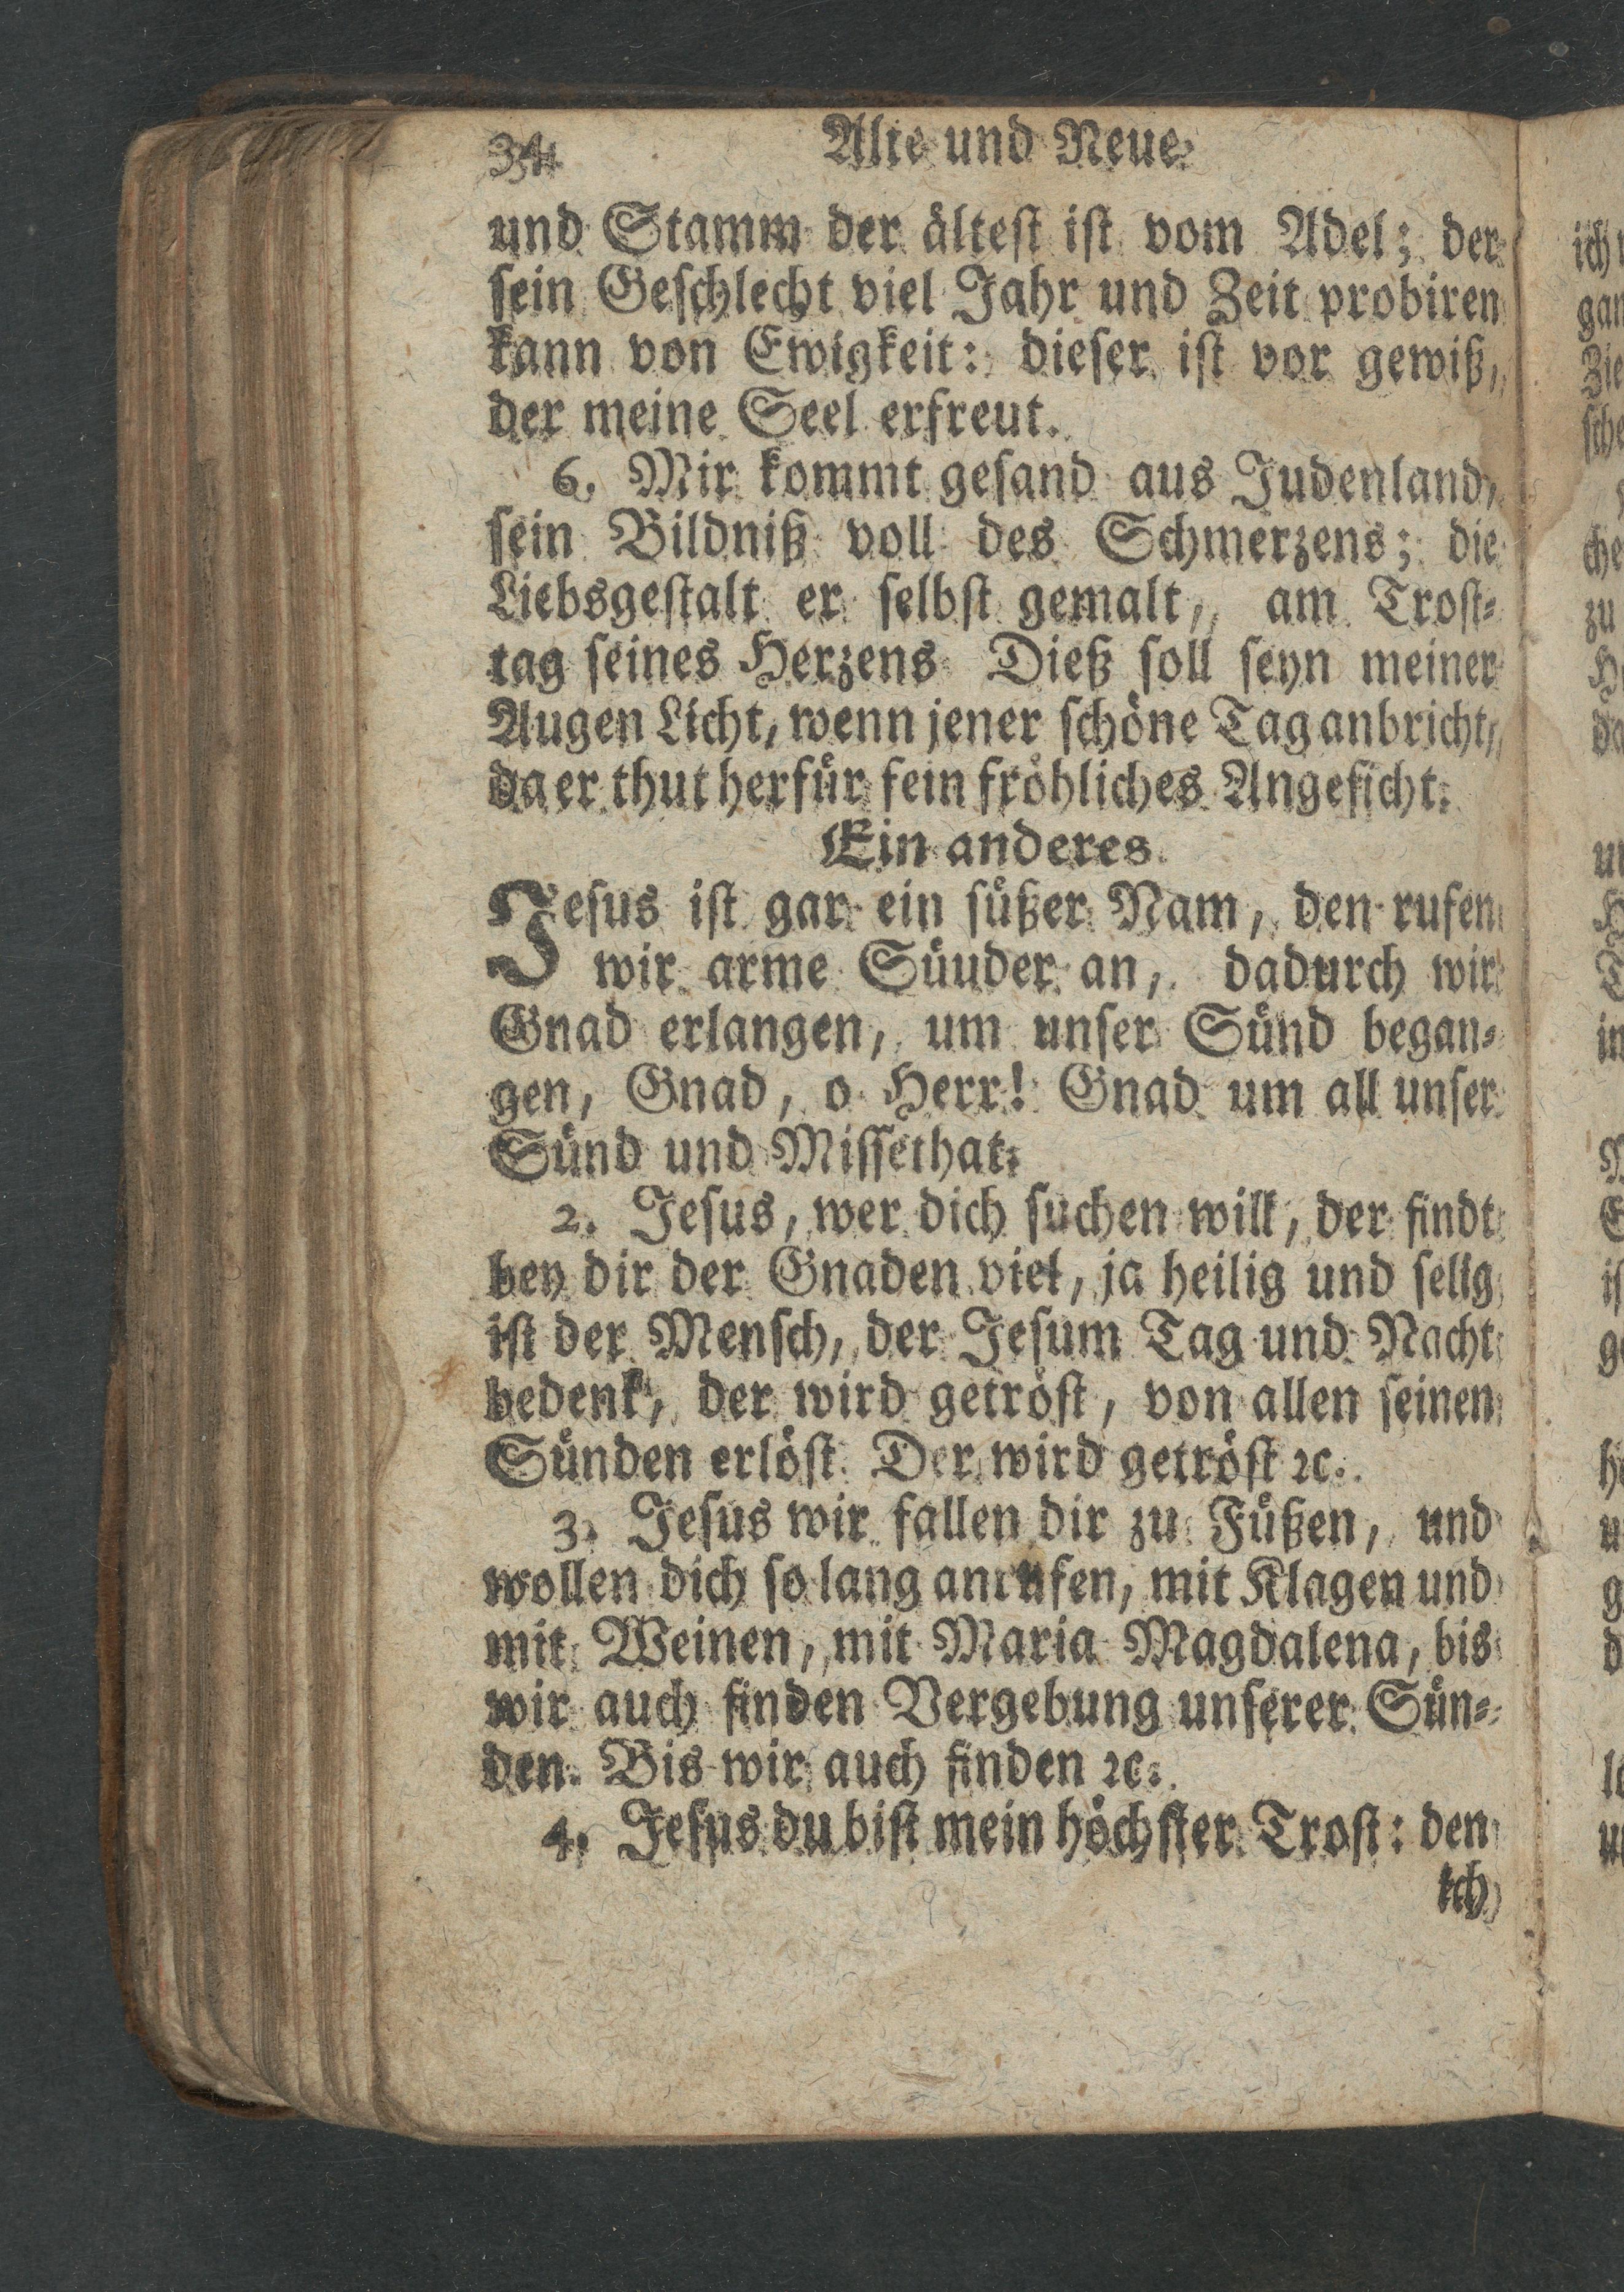 34 Alte und Neue
und Stamm der ältest ist vom Adel; der
sein Geschlecht viel Jahr und Zeit probiren
kann von Ewigkeit: dieser ist vor gewiß,
der meine Seel erfreut.
6. Mir kommt gesand aus Judenland,
sein Bildniß voll des Schmerzens; die
Liebsgestalt er selbst gemalt, am Trost-
tag seines Herzens Dieß soll seyn meiner
Augen Licht, wenn jener schöne Tag anbricht,
da er thut herfür sein fröhliches Angesicht.
Ein anderes.
Jesus ist gar ein süßer Nam, den rufen
wir arme Süuder an, dadurch wir
Gnad erlangen, um unser Sünd began-
gen, Gnad, o Herr! Gnad um all unser
Sünd und Missethat.
2. Jesus, wer dich suchen will, der findt
bey dir der Gnaden viel, ja heilig und selig
ist der Mensch, der Jesum Tag und Nacht
bedenk, der wird getröst, von allen seinen
Sünden erlöst. Der wird getröst ꝛc.
3. Jesus wir fallen dir zu Füßen, und
wollen dich so lang anrufen, mit Klagen und
mit Weinen, mit Maria Magdalena, bis
wir auch finden Vergebung unserer Sün-
den. Bis wir auch finden ꝛc.
4. Jesus du bist mein höchster Trost: den
ich